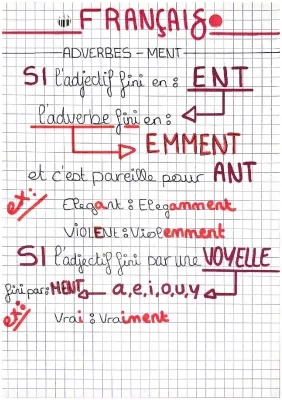 FRANÇAIS
ADVERBES - MENT
SI l'adjectif fini en : ENT
l'adverbe fini en :
EMMENT
et c'est pareille pour ANT
ex: Elegant : Elegamment
VIOLENT : Violemment
SI l'adjectif fini par une VOYELLE
fini par : MENT a,e,i,o,u,y
ex: Vrai : Vraiment